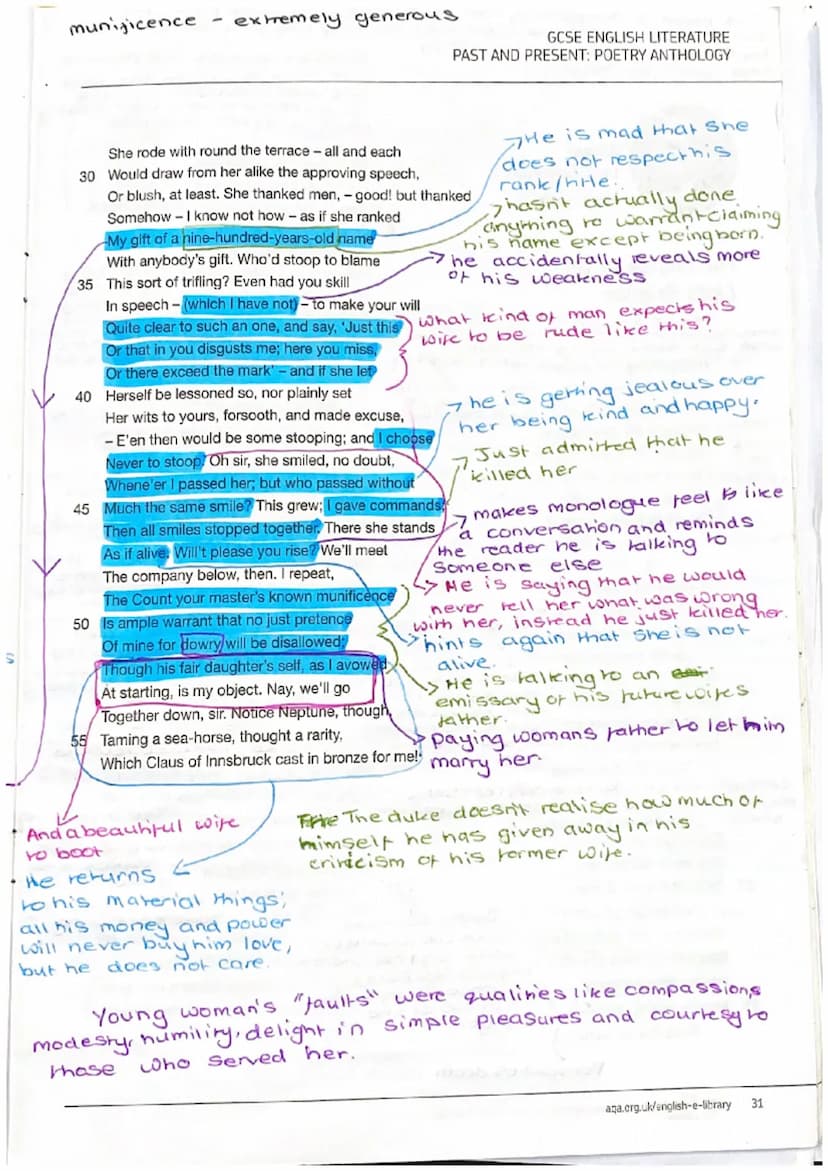 munificence - extremely generous
GCSE ENGLISH LITERATURE
PAST AND PRESENT: POETRY ANTHOLOGY
She rode with round the terrace – all and each
30 Would draw from her alike the approving speech,
Or blush, at least. She thanked men, – good! but thanked
Somehow – I know not how – as if she ranked
My gift of a nine-hundred-years-old name
With anybody's gift. Who'd stoop to blame
35 This sort of trifling? Even had you skill
In speech – (which I have not) – to make your will
Quite clear to such an one, and say, 'Just this
Or that in you disgusts me; here you miss,
Or there exceed the mark' – and if she let
40 Herself be lessoned so, nor plainly set
Her wits to yours, forsooth, and made excuse,
– E'en then would be some stooping; and I choose
Never to stoop. Oh sir, she smiled, no doubt,
Whene'er I passed her; but who passed without
45 Much the same smile? This grew; I gave commands;
Then all smiles stopped together. There she stands
As if alive. Will't please you rise? We'll meet
The company below, then. I repeat,
The Count your master's known munificence
50 Is ample warrant that no just pretence
Of mine for dowry will be disallowed;
Though his fair daughter's self, as I avowed
At starting, is my object. Nay, we'll go
Together down, sir. Notice Neptune, though,
55 Taming a sea-horse, thought a rarity,
Which Claus of Innsbruck cast in bronze for me!
He is mad that she
does not respect his
rank/title.
hasn't actually done
anything to warrant claiming
his name except being born.
he accidentally reveals more
of his weakness
What kind of man expects his
wife to be rude like this?
he is getting jealous over
her being kind and happy.
Just admitted that he
killed her
makes monologue feel like
a conversation and reminds
the reader he is talking to
someone else
He is saying that he would
never tell her what was wrong
with her, instead he just killed her.
hints again that she is not
alive.
He is talking to an
emissary of his future wifes
father.
paying womans father to let him
marry her.
And a beautiful wife
to boot
He returns
to his material things;
all his money and power
will never buy him love,
but he does not care.
The The duke doesn't realise how much of
himself he has given away in his
criticism of his former wife.
Young woman's "faults" were qualities like compassion,
modesty, humility, delight in simple pleasures and courtesy to
those who served her.
aqa.org.uk/english-e-library 31